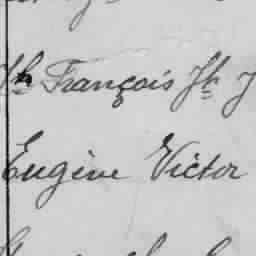 François Jh
Eugène Victor